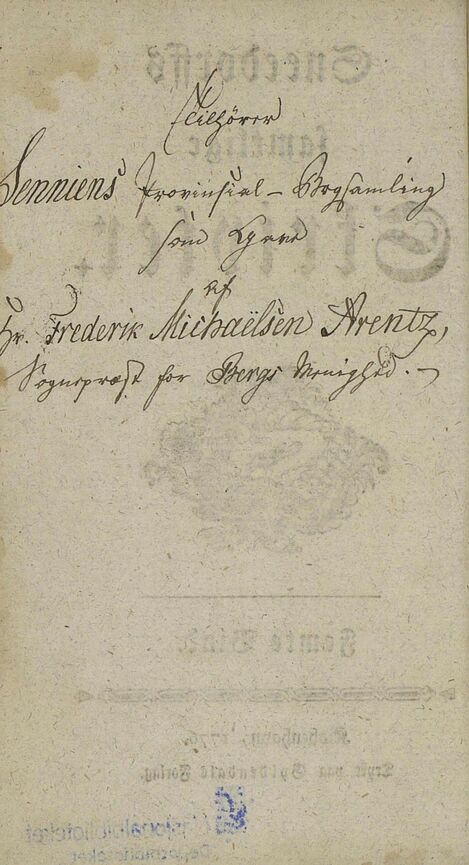 Tilhører
Senniens Provinsial- Bogsamling
som Gave
af
Hr. Frederik Michaëlsen Arentz,
Sognepræst for Bergs Menighed. -
Sneedorffs
samtlige
Skrifter.
Femte Bind.
Kiøbenhavn, 1776.
Trykt paa Gyldendals Forlag.